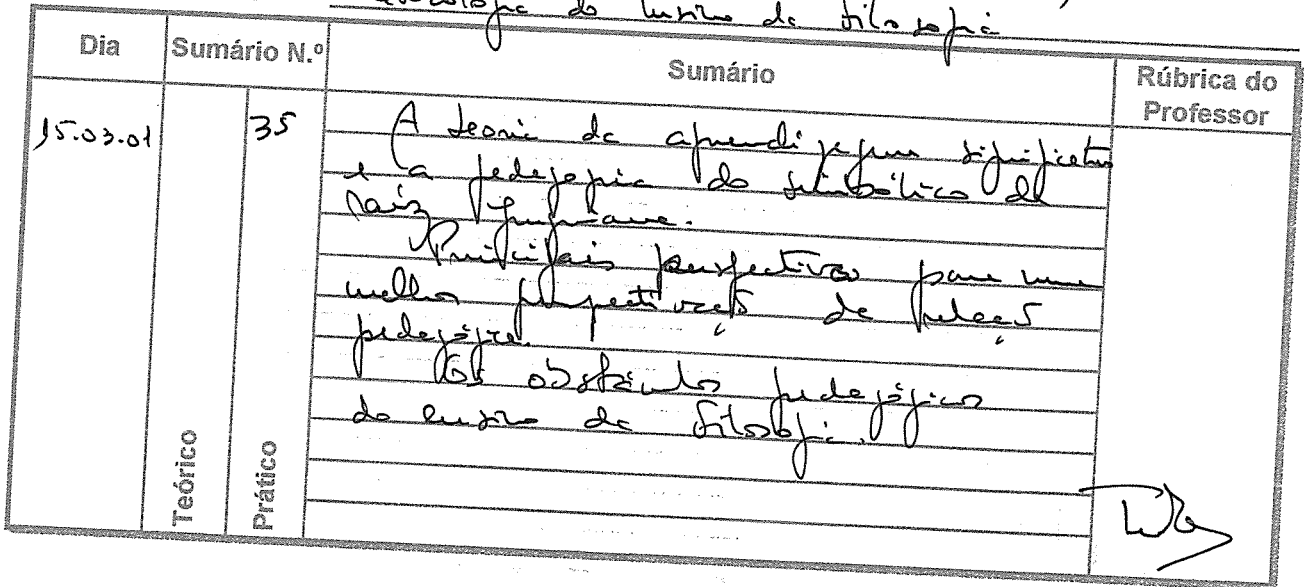 do ensino da filosofia
Dia
Sumário N.º
Sumário
Rúbrica do
Professor
15.03.01
35
A teoria da aprendizagem significativa
e a pedagogia do simbólico de
raiz
Principais perspectivas para uma
melhor da relação
pedagógica.
Os obstáculos pedagógicos
do ensino da filosofia.
Teórico
Prático